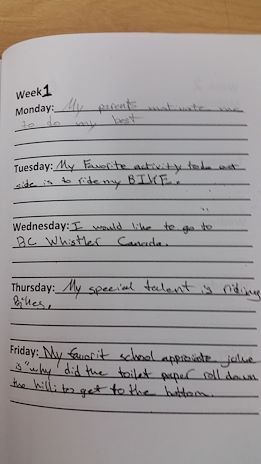 Week 1
Monday: My parents motivate me
to do my best
Tuesday: My Favorite activity to do out
side is to ride my BIKE.
Wednesday: I would like to go to
BC Whistler Canada.
Thursday: My special talent is riding
Bikes.
Friday: My favorit school approviate joke
is "why did the toilet paper roll down
the hill: to get to the bottom.